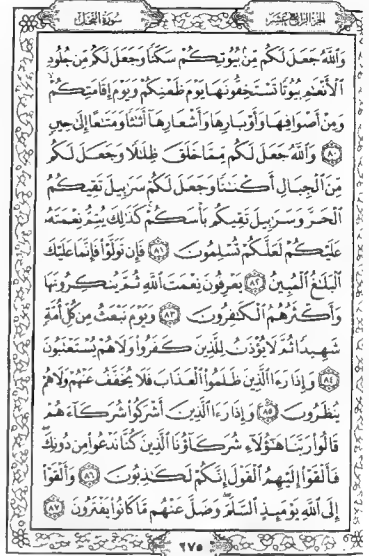 الجزء الرابع عشر
سورة النحل
وَٱللَّهُ جَعَلَ لَكُم مِّنۢ بُيُوتِكُمْ سَكَنًا وَجَعَلَ لَكُم مِّن جُلُودِ
ٱلْأَنْعَٰمِ بُيُوتًا تَسْتَخِفُّونَهَا يَوْمَ ظَعْنِكُمْ وَيَوْمَ إِقَامَتِكُمْ ۙ
وَمِنْ أَصْوَافِهَا وَأَوْبَارِهَا وَأَشْعَارِهَآ أَثَٰثًا وَمَتَٰعًا إِلَىٰ حِينٍ
٨٠ وَٱللَّهُ جَعَلَ لَكُم مِّمَّا خَلَقَ ظِلَٰلًا وَجَعَلَ لَكُم
مِّنَ ٱلْجِبَالِ أَكْنَٰنًا وَجَعَلَ لَكُمْ سَرَٰبِيلَ تَقِيكُمُ
ٱلْحَرَّ وَسَرَٰبِيلَ تَقِيكُم بَأْسَكُمْ ۚ كَذَٰلِكَ يُتِمُّ نِعْمَتَهُۥ
عَلَيْكُمْ لَعَلَّكُمْ تُسْلِمُونَ ٨١ فَإِن تَوَلَّوْا۟ فَإِنَّمَا عَلَيْكَ
ٱلْبَلَٰغُ ٱلْمُبِينُ ٨٢ يَعْرِفُونَ نِعْمَتَ ٱللَّهِ ثُمَّ يُنكِرُونَهَا
وَأَكْثَرُهُمُ ٱلْكَٰفِرُونَ ٨٣ وَيَوْمَ نَبْعَثُ مِن كُلِّ أُمَّةٍ
شَهِيدًا ثُمَّ لَا يُؤْذَنُ لِلَّذِينَ كَفَرُوا۟ وَلَا هُمْ يُسْتَعْتَبُونَ
٨٤ وَإِذَا رَءَا ٱلَّذِينَ ظَلَمُوا۟ ٱلْعَذَابَ فَلَا يُخَفَّفُ عَنْهُمْ وَلَا هُمْ
يُنظَرُونَ ٨٥ وَإِذَا رَءَا ٱلَّذِينَ أَشْرَكُوا۟ شُرَكَآءَهُمْ
قَالُوا۟ رَبَّنَا هَٰٓؤُلَآءِ شُرَكَآؤُنَا ٱلَّذِينَ كُنَّا نَدْعُوا۟ مِن دُونِكَ ۖ
فَأَلْقَوْا۟ إِلَيْهِمُ ٱلْقَوْلَ إِنَّكُمْ لَكَٰذِبُونَ ٨٦ وَأَلْقَوْا۟
إِلَى ٱللَّهِ يَوْمَئِذٍ ٱلسَّلَمَ ۖ وَضَلَّ عَنْهُم مَّا كَانُوا۟ يَفْتَرُونَ ٨٧
٢٧٥